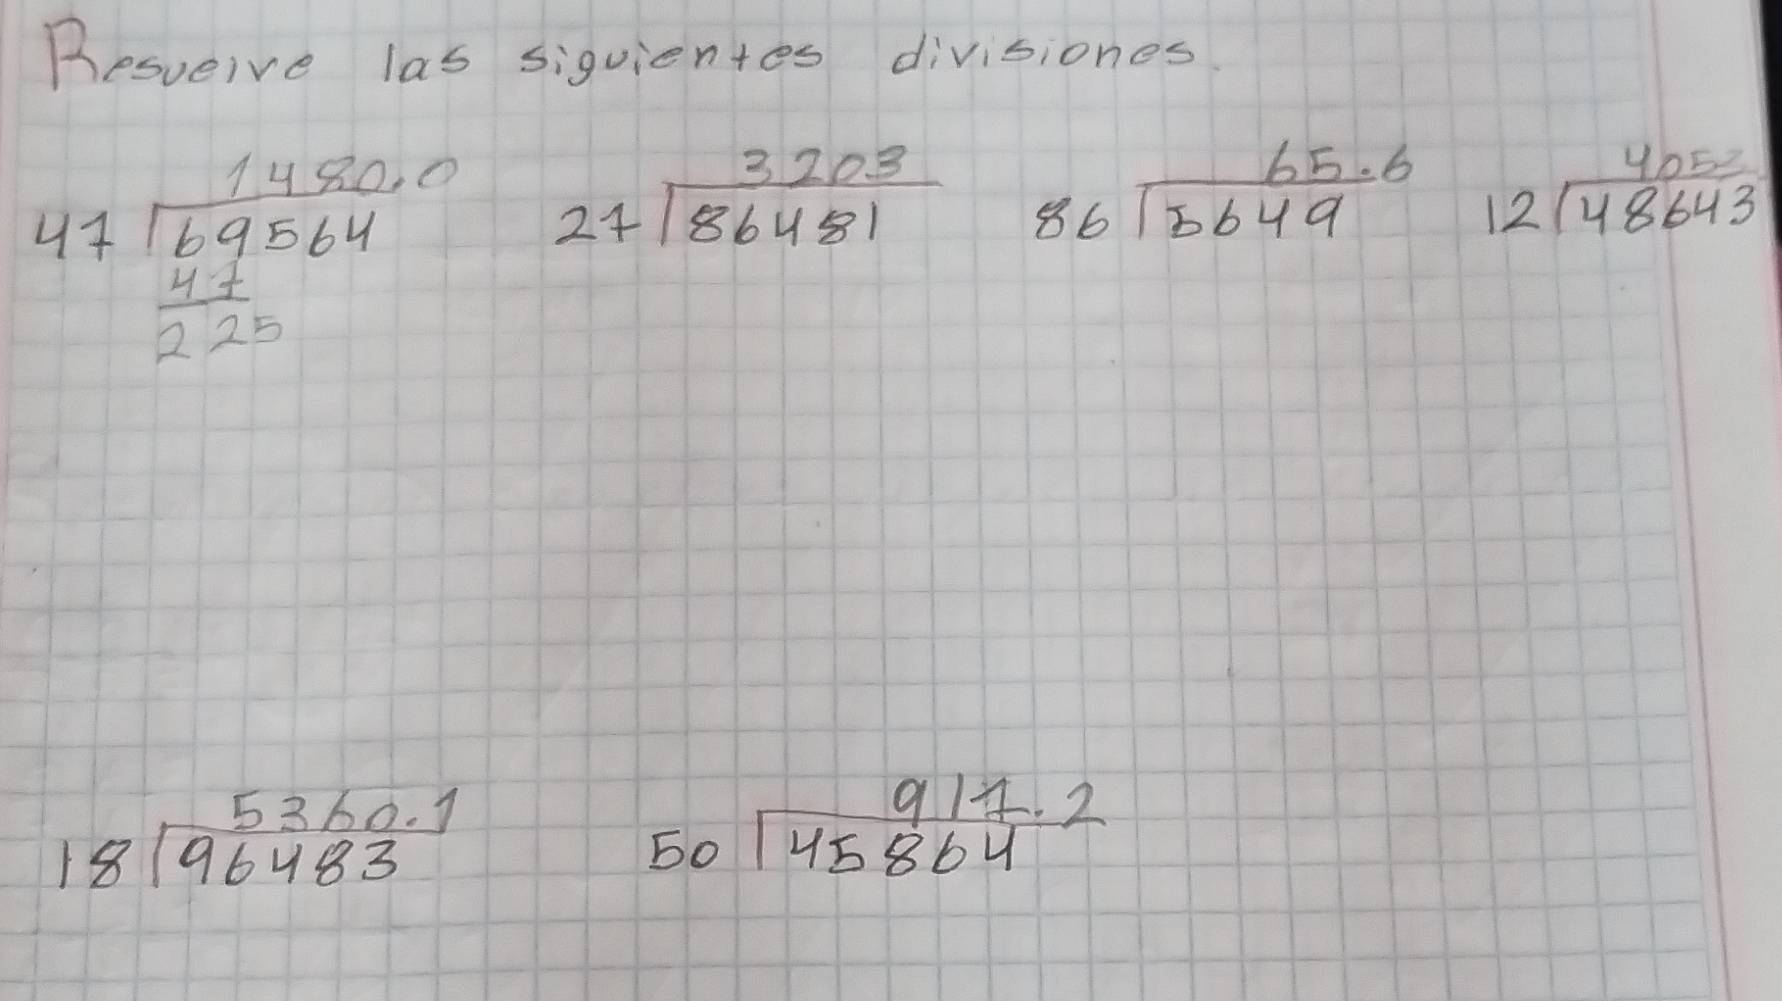 Resuelve las siguientes divisiones.
1480.0 3203 65.6 4053
47 69564 27 86481 86 5649 12 48643
47
225
5360.1 917.2
18 96483 50 45864